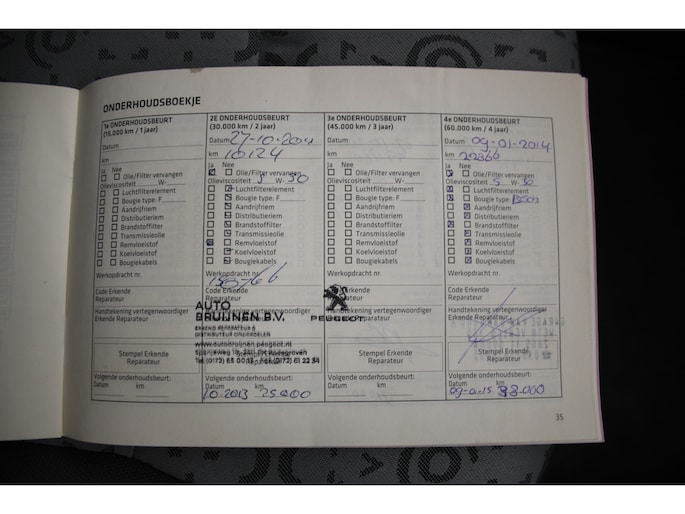 ONDERHOUDSBOEKJE
1e ONDERHOUDSBEURT
(15.000 km / 1 jaar)
Datum
km
Ja Nee
Olie/Filter vervangen
Olieviscositeit W-
Luchtfilterelement
Bougie type: F
Aandrijfriem
Distributieriem
Brandstoffilter
Transmissieolie
Remvloeistof
Koelvloeistof
Bougiekabels
Werkopdracht nr.
Code Erkende
Reparateur
Handtekening vertegenwoordiger
Erkende Reparateur
Stempel Erkende
Reparateur
Volgende onderhoudsbeurt:
Datum km
2E ONDERHOUDSBEURT
(30.000 km / 2 jaar)
Datum 27-10-
km 10124
Ja Nee
Olie/Filter vervangen
Olieviscositeit 5 W-30
Luchtfilterelement
Bougie type: F
Aandrijfriem
Distributieriem
Brandstoffilter
Transmissieolie
Remvloeistof
Koelvloeistof
Bougiekabels
Werkopdracht nr.
Code Erkende
Reparateur
AUTO
BRUIJNEN B.V.
ERKEND REPARATEUR &
DISTRIBUTEUR ONDERDELEN
www.autobruijnen.peugeot.nl
Stempel Erkende
Reparateur
Volgende onderhoudsbeurt:
Datum km
10.2013 25.000
3e ONDERHOUDSBEURT
(45.000 km / 3 jaar)
Datum
km
Ja Nee
Olie/Filter vervangen
Olieviscositeit W-
Luchtfilterelement
Bougie type: F
Aandrijfriem
Distributieriem
Brandstoffilter
Transmissieolie
Remvloeistof
Koelvloeistof
Bougiekabels
Werkopdracht nr.
PEUGEOT
Code Erkende
Reparateur
Handtekening vertegenwoordiger
Erkende Reparateur
Stempel Erkende
Reparateur
Volgende onderhoudsbeurt:
Datum km
4e ONDERHOUDSBEURT
(60.000 km / 4 jaar)
Datum 09-01-2014
km
Ja Nee
Olie/Filter vervangen
Olieviscositeit 5 W-30
Luchtfilterelement
Bougie type: Bosch
Aandrijfriem
Distributieriem
Brandstoffilter
Transmissieolie
Remvloeistof
Koelvloeistof
Bougiekabels
Werkopdracht nr.
Code Erkende
Reparateur
Handtekening vertegenwoordiger
Erkende Reparateur
Stempel Erkende
Reparateur
Volgende onderhoudsbeurt:
Datum km
35